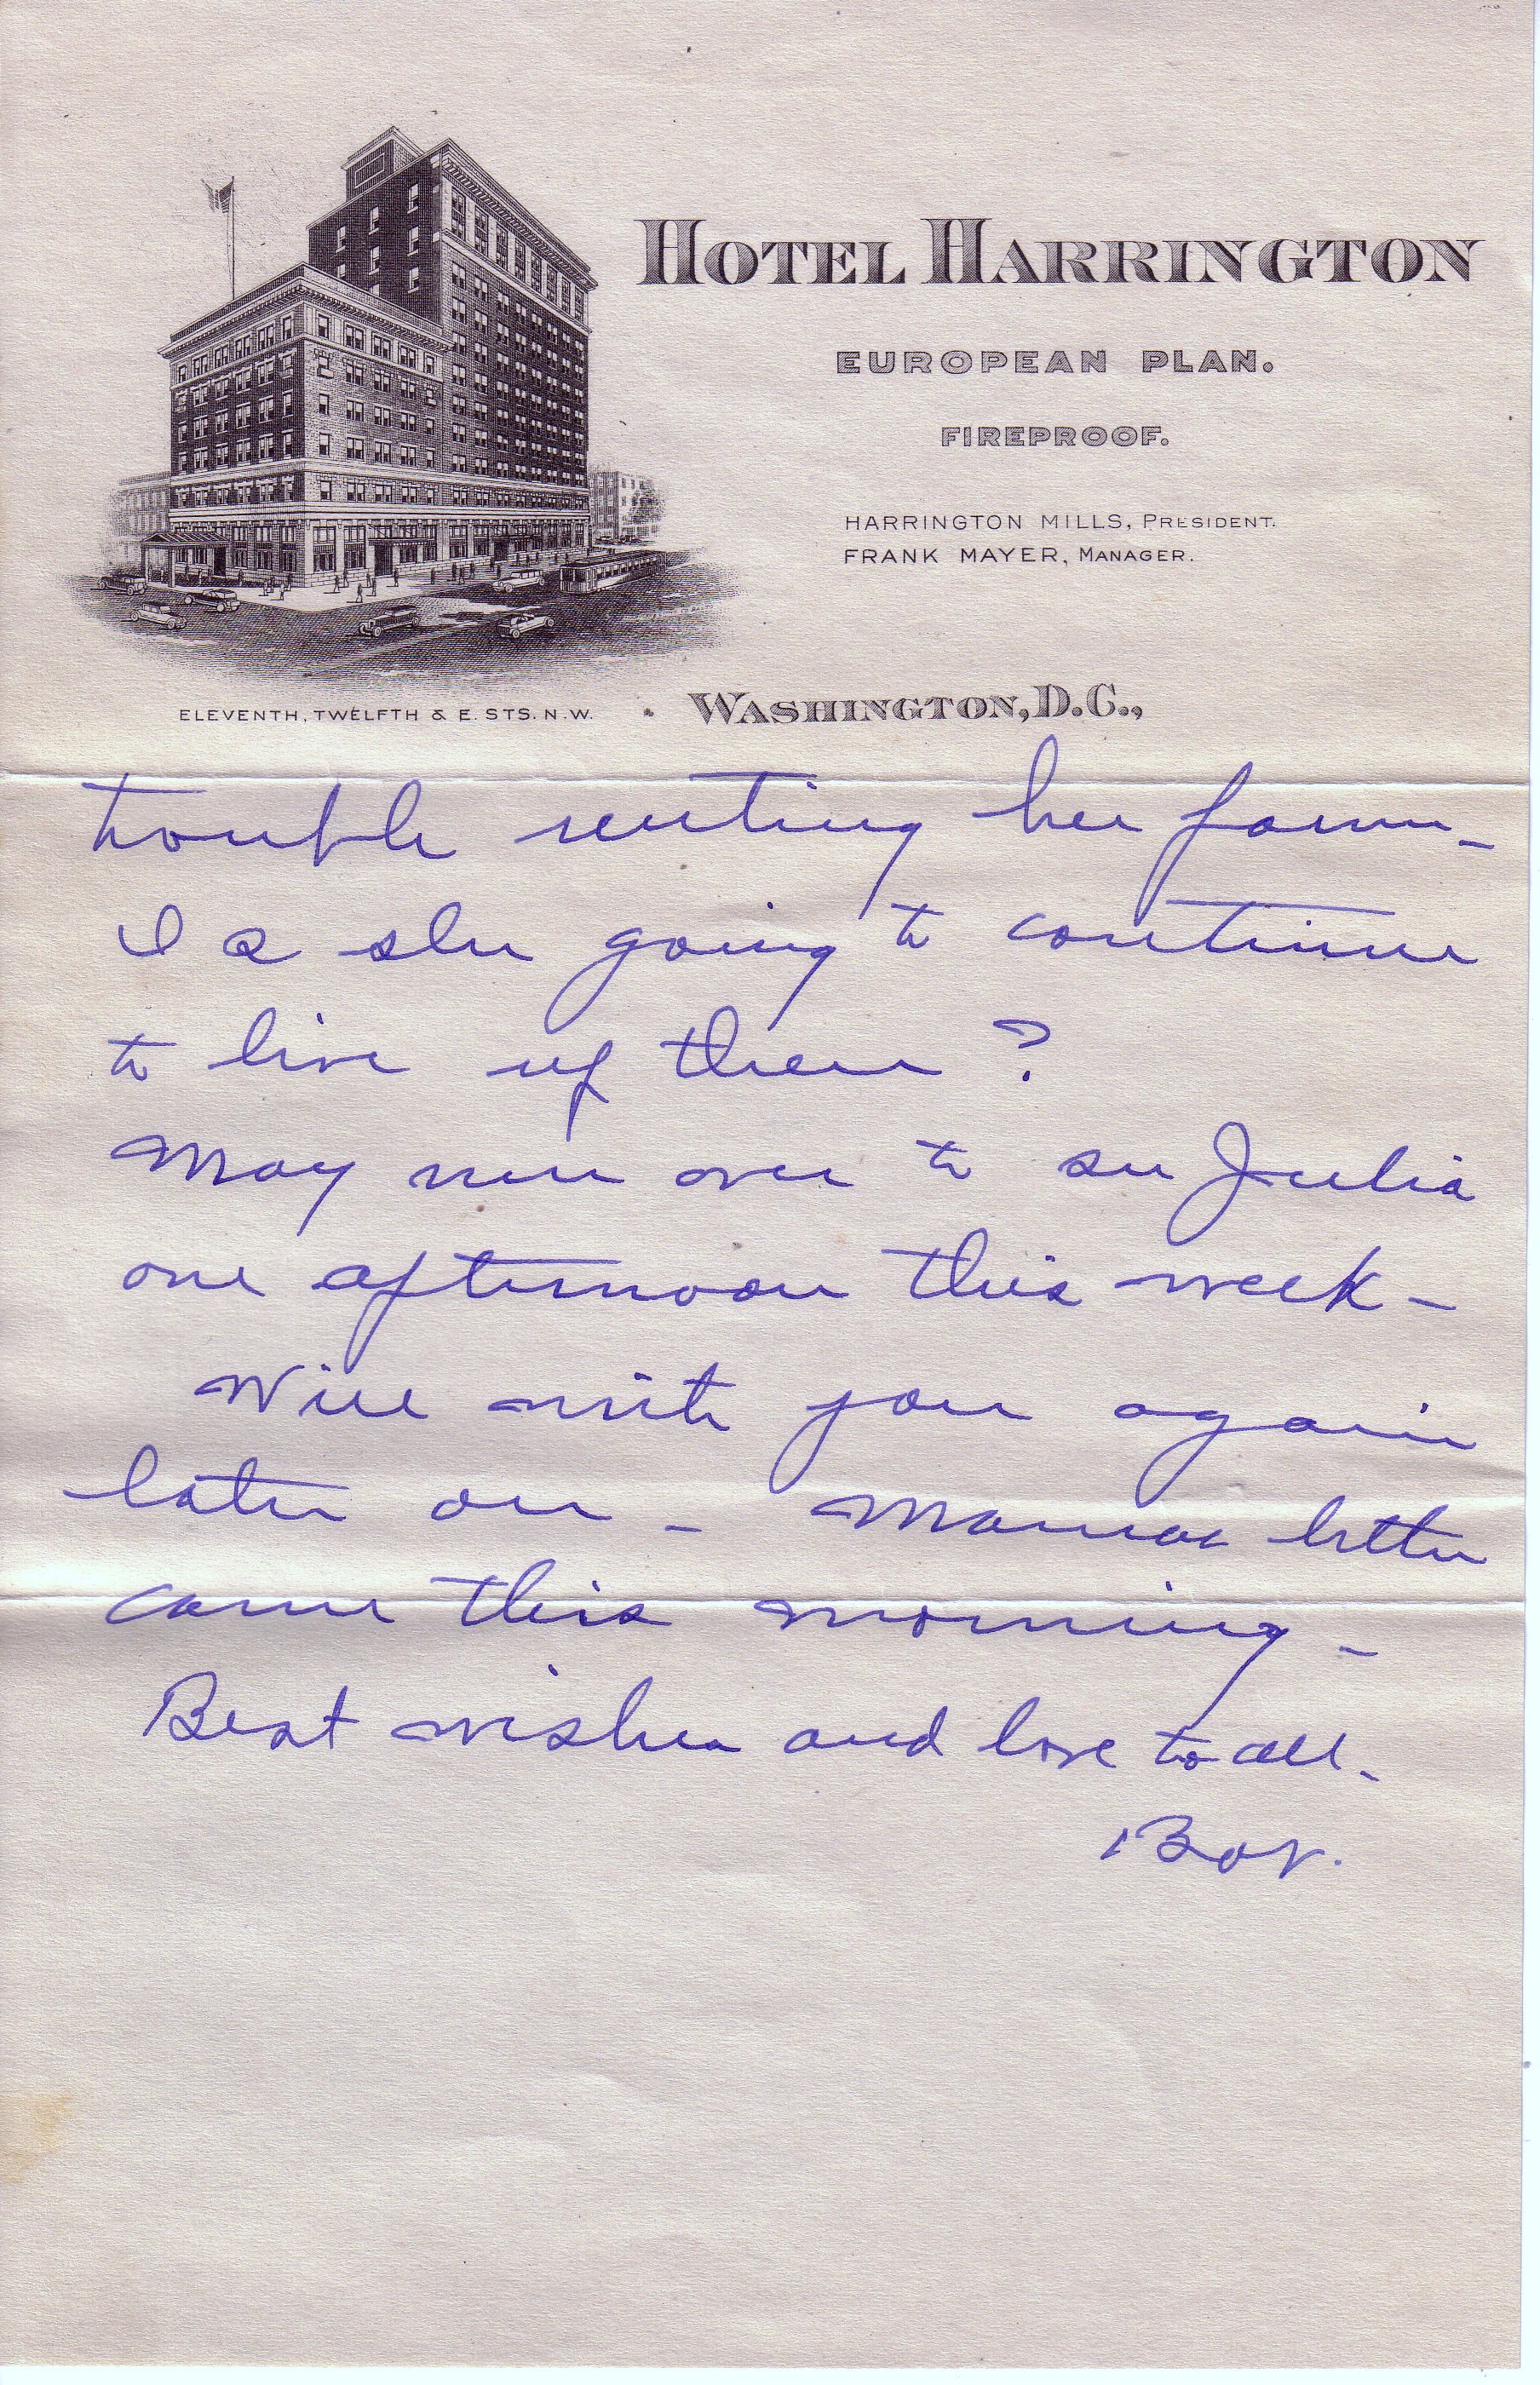 HOTEL HARRINGTON
EUROPEAN PLAN.
FIREPROOF.
HARRINGTON MILLS, PRESIDENT.
FRANK MAYER, MANAGER.
ELEVENTH, TWELFTH & E. STS. N.W.
WASHINGTON, D.C.,
trouble renting her farm -
Is she going to continue
to live up there?
May run over to see Julia
one afternoon this week -
Will write you again
later on - Mamas letter
came this morning -
Best wishes and love to all -